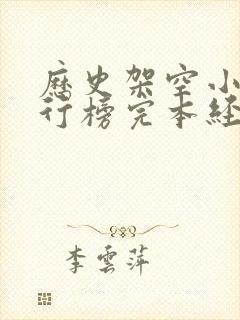 歷史架空小
行榜完本經
李雲萍